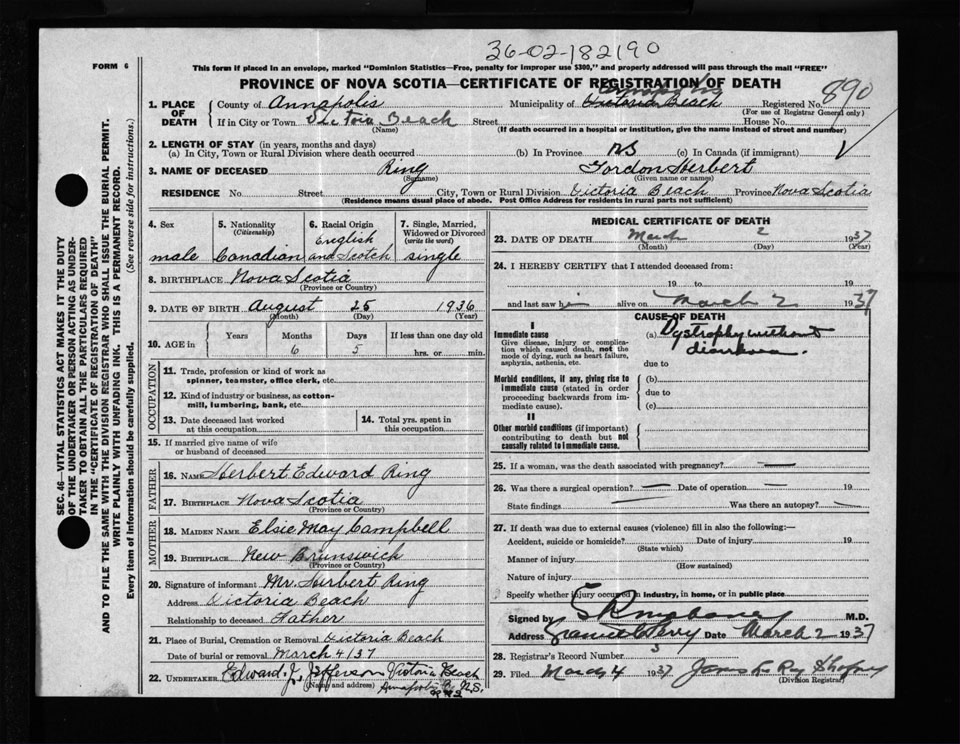 36-02-182190
FORM 6
This form if placed in an envelope, marked "Dominion Statistics—Free, penalty for improper use $300," and properly addressed will pass through the mail "FREE"
PROVINCE OF NOVA SCOTIA—CERTIFICATE OF REGISTRATION OF DEATH
1. PLACE OF DEATH
County of Annapolis Municipality of Victoria Beach Registered No. 890
(For use of Registrar General only)
If in City or Town Victoria Beach Street House No.
(Name) (If death occurred in a hospital or institution, give the name instead of street and number)
2. LENGTH OF STAY (in years, months and days)
(a) In City, Town or Rural Division where death occurred (b) In Province NS (c) In Canada (if immigrant)
3. NAME OF DECEASED Ring Gordon Herbert
(Surname) (Given name or names)
RESIDENCE No. Street City, Town or Rural Division Victoria Beach Province Nova Scotia
(Residence means usual place of abode. Post Office Address for residents in rural parts not sufficient)
4. Sex
male
5. Nationality
(Citizenship)
Canadian
6. Racial Origin
English
and Scotch
7. Single, Married,
Widowed or Divorced
(write the word)
single
8. BIRTHPLACE Nova Scotia
(Province or Country)
9. DATE OF BIRTH August 25 1936
(Month) (Day) (Year)
10. AGE in Years Months Days If less than one day old
6 5 hrs. or min.
OCCUPATION
11. Trade, profession or kind of work as
spinner, teamster, office clerk, etc.
12. Kind of industry or business, as cotton-
mill, lumbering, bank, etc.
13. Date deceased last worked
at this occupation
14. Total yrs. spent in
this occupation
15. If married give name of wife
or husband of deceased
FATHER
16. NAME Herbert Edward Ring
17. BIRTHPLACE Nova Scotia
(Province or Country)
MOTHER
18. MAIDEN NAME Elsie May Campbell
19. BIRTHPLACE New Brunswick
(Province or Country)
20. Signature of informant Mr. Herbert Ring
Address Victoria Beach
Relationship to deceased Father
21. Place of Burial, Cremation or Removal Victoria Beach
Date of burial or removal March 4/37
22. UNDERTAKER Edward J. Jefferson Victoria Beach
(Name and address) Annapolis Co. N.S.
MEDICAL CERTIFICATE OF DEATH
23. DATE OF DEATH March 2 1937
(Month) (Day) (Year)
24. I HEREBY CERTIFY that I attended deceased from:
19 to 19
and last saw h alive on March 2 1937
CAUSE OF DEATH
I
Immediate cause
Give disease, injury or complica-
tion which caused death, not the
mode of dying, such as heart failure,
asphyxia, asthenia, etc.
(a) Dystrophy without
diarrhoea.
due to
Morbid conditions, if any, giving rise to
immediate cause (stated in order
proceeding backwards from im-
mediate cause).
(b)
due to
(c)
II
Other morbid conditions (if important)
contributing to death but not
causally related to immediate cause.
25. If a woman, was the death associated with pregnancy?
26. Was there a surgical operation? Date of operation 19
State findings Was there an autopsy?
27. If death was due to external causes (violence) fill in also the following:—
Accident, suicide or homicide? Date of injury 19
(State which)
Manner of injury
(How sustained)
Nature of injury
Specify whether injury occurred in industry, in home, or in public place
Signed by M.D.
Address Date March 2 1937
28. Registrar's Record Number 3
29. Filed March 4 1937
(Division Registrar)
SEC. 46—VITAL STATISTICS ACT MAKES IT THE DUTY
OF THE UNDERTAKER OR PERSON ACTING AS UNDER-
TAKER TO OBTAIN ALL THE PARTICULARS REQUIRED
IN THE "CERTIFICATE OF REGISTRATION OF DEATH"
AND TO FILE THE SAME WITH THE DIVISION REGISTRAR WHO SHALL ISSUE THE BURIAL PERMIT.
WRITE PLAINLY WITH UNFADING INK. THIS IS A PERMANENT RECORD.
Every item of Information should be carefully supplied. (See reverse side for instructions.)